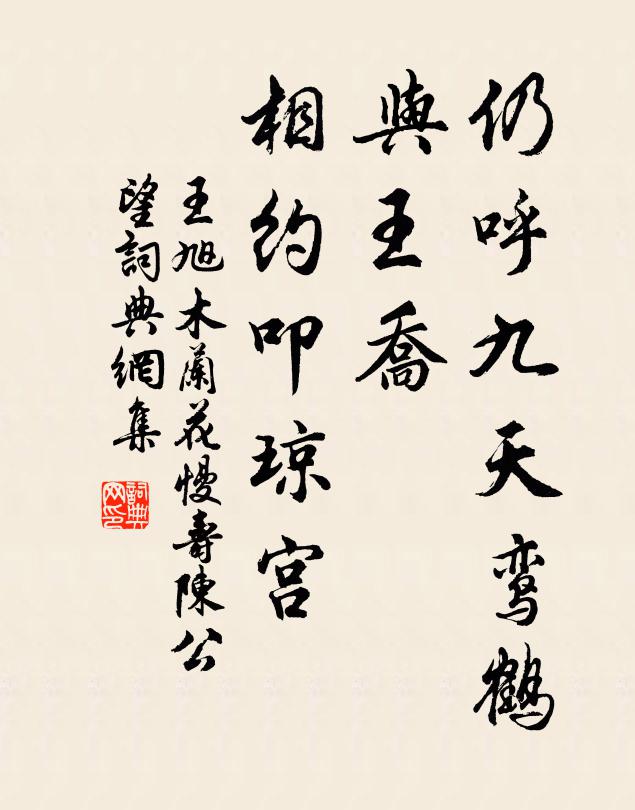 仍呼九天鸾鹤
與王喬
相约叩琼宫
王旭木蘭花慢壽陳公
望詞典網集
詞典
网印